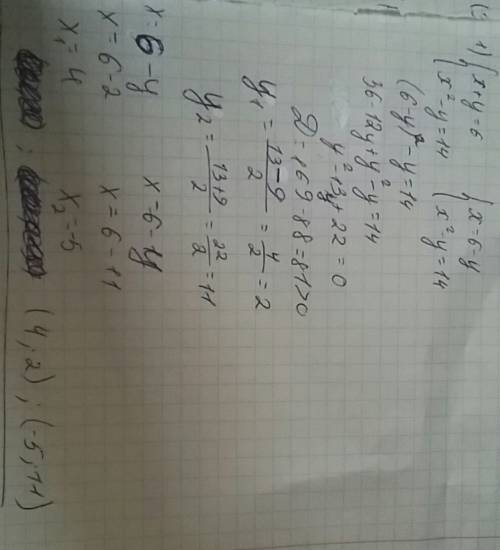 1) { x+y=6 { x=6-y
x²-y=14 x²-y=14
(6-y)²-y=14
36-12y+y²-y=14
y²-13y+22=0
D=169-88=81>0
y₁=13-9/2=4/2=2
y₂=13+9/2=22/2=11
x=6-y x=6-y
x=6-2 x=6-11
x₁=4 x₂=-5
; (4;2); (-5;11)